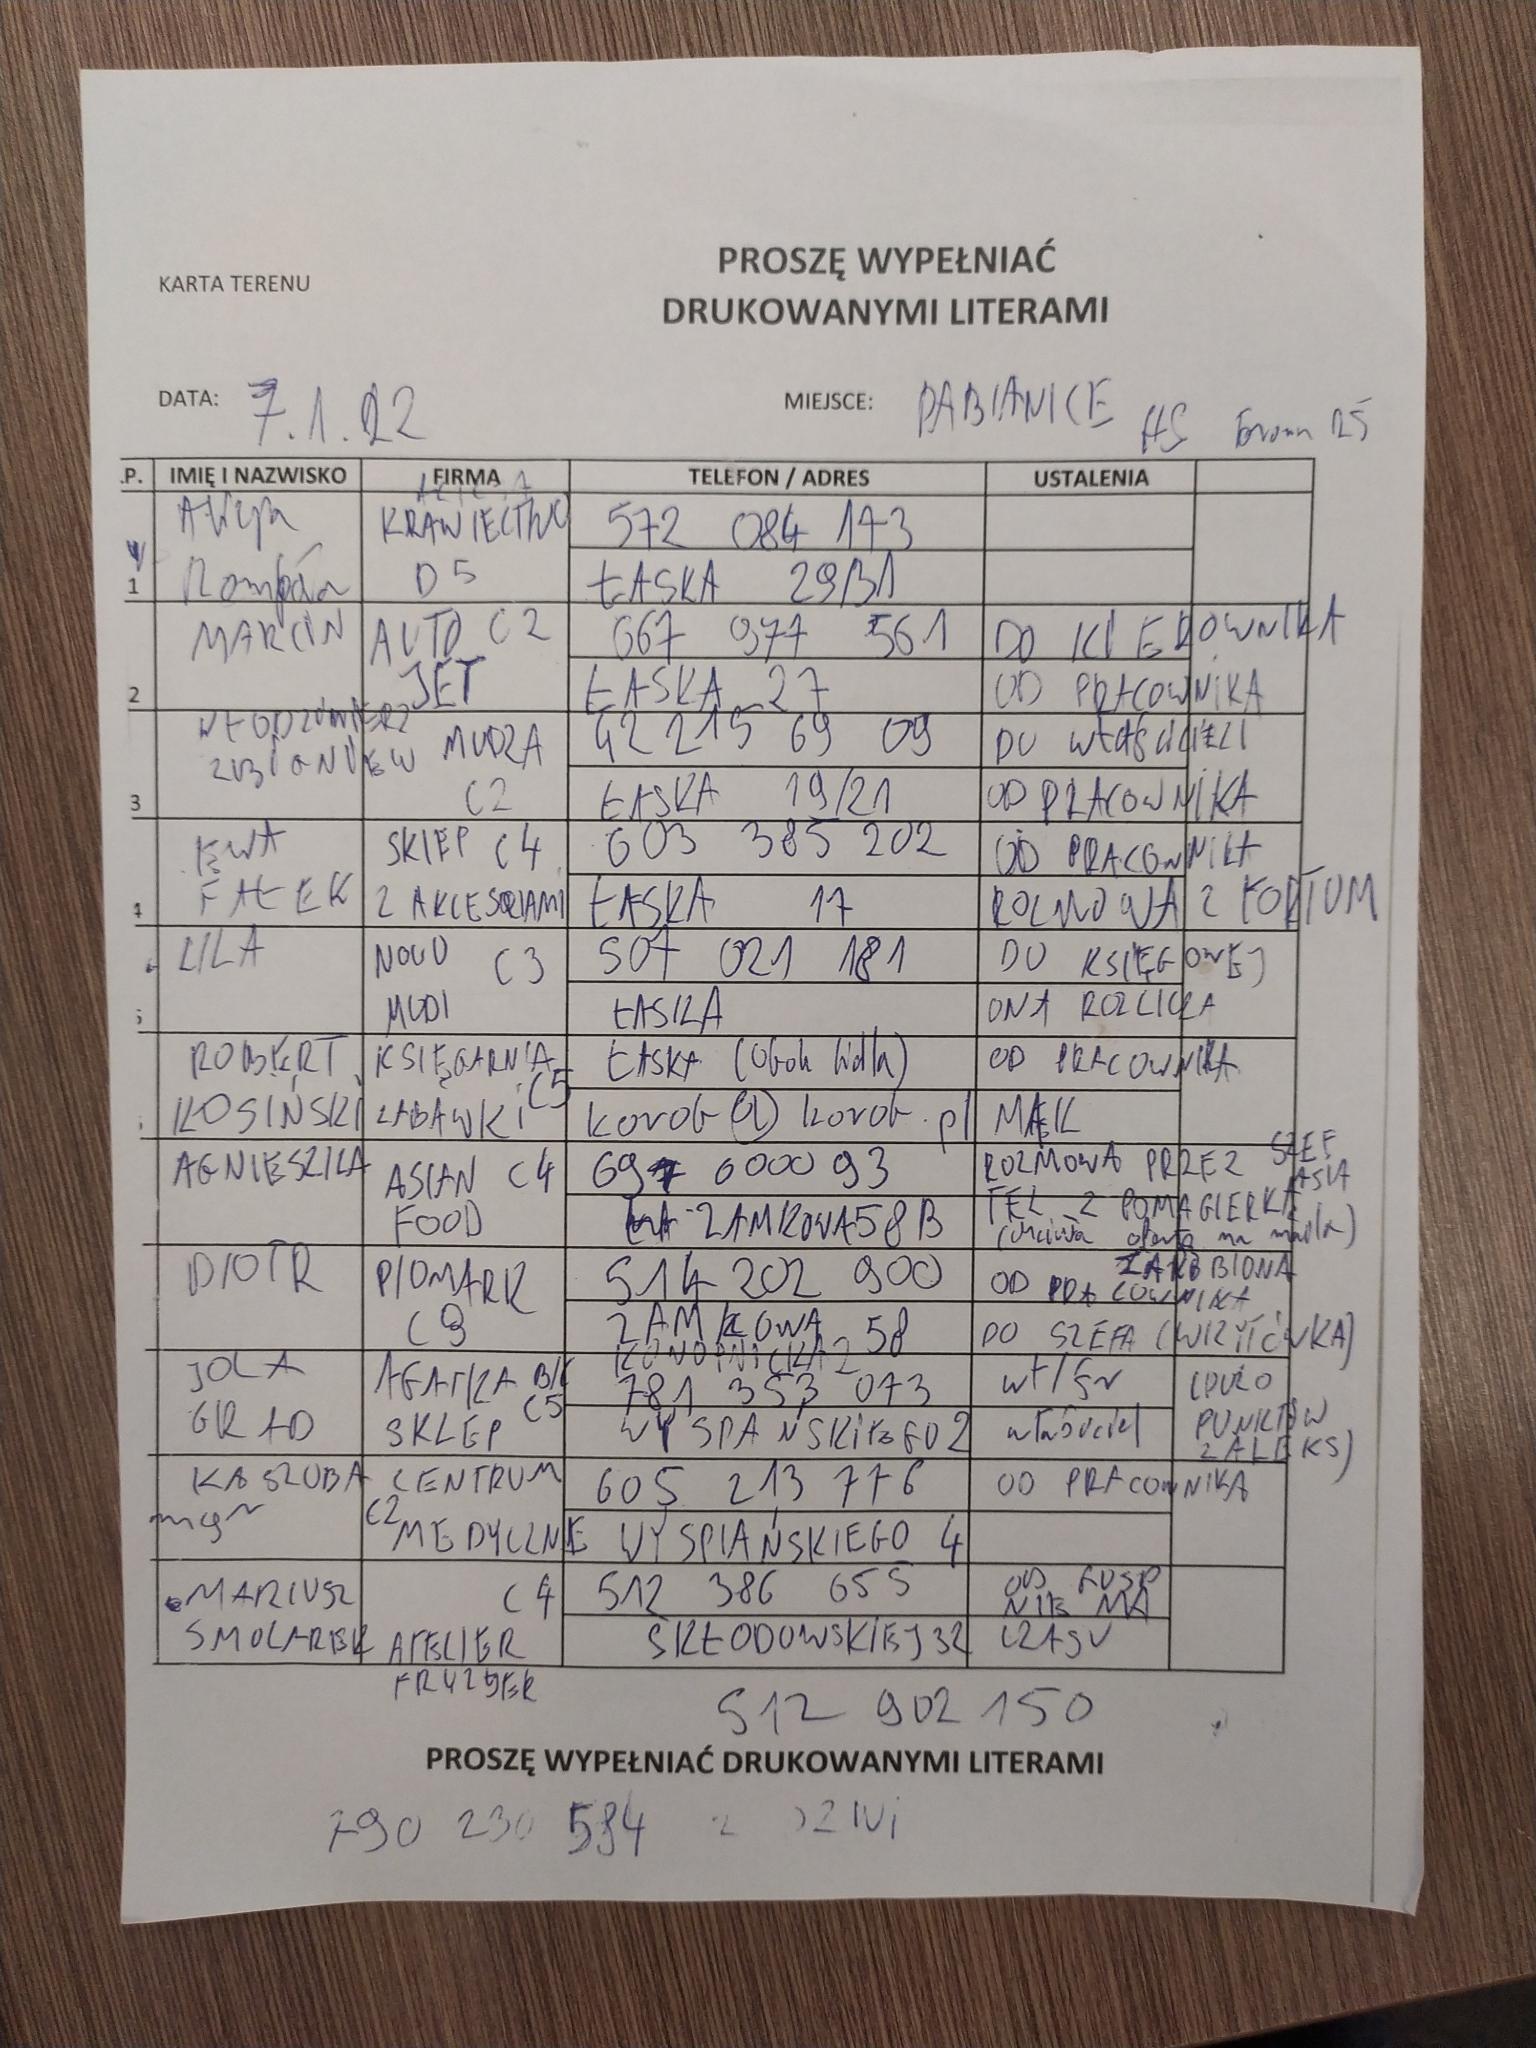 KARTA TERENU
PROSZĘ WYPEŁNIAĆ
DRUKOWANYMI LITERAMI
DATA: 7.1.22
MIEJSCE: PABIANICE
HS
.P. IMIĘ I NAZWISKO FIRMA TELEFON / ADRES USTALENIA
Alicja KRAWIECTWO 572 084 143
1 D5 ŁASKA 29/31
MARCIN AUTO C2 667 977 561 DO KIEROWNIKA
2 JET ŁASKA 27 OD PRACOWNIKA
WŁODZIMIERZ MUDZA 42 215 69 09 DO WŁAŚCICIELI
ZBIGNIEW
3 C2 ŁASKA 19/21 OD PRACOWNIKA
EWA SKLEP C4 603 385 202 OD PRACOWNIKA
4 FAŁEK Z AKCESORIAMI ŁASKA 17 ROZMOWA Z FORTUM
LILA NOVO C3 507 021 181 DO KSIĘGOWEJ
MODI ŁASKA ONA ROZLICZA
ROBERT KSIĘGARNIA ŁASKA (obok lidla) OD PRACOWNIKA
KOSIŃSKI ZABAWKI C5 korob@korob.pl
AGNIESZKA ASIAN C4 697 6000 93 ROZMOWA PRZEZ SZEF ASIA
FOOD ZAMKOWA 58B TEL Z POMAGIERKĄ
oferta na maila)
PIOTR PIOMARK 514 202 900 OD PRACOWNIKA
C9 ZAMKOWA 58 DO SZEFA (WIZYTÓWKA)
KONOPNICKA 2
JOLA AGATKA C5 781 353 073 wt/śr (DUŻO
GRAD SKLEP WYSPAŃSKIEGO 2 właściciel PUNKTÓW
ZALEKS)
KASZUBA CENTRUM 605 213 776 OD PRACOWNIKA
mgr C2 MEDYCZNE WYSPIAŃSKIEGO 4
MARIUSZ C4 512 386 655 NIE MA
SMOLAREK ATELIER SKŁODOWSKIEJ 32 CZASU
FRYZJER
512 902 150
PROSZĘ WYPEŁNIAĆ DRUKOWANYMI LITERAMI
790 230 594